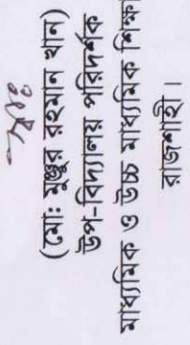 (মোঃ মুঞ্জুর রহমান খান)
উপ-বিদ্যালয় পরিদর্শক
মাধ্যমিক ও উচ্চ মাধ্যমিক শিক্ষা
রাজশাহী।